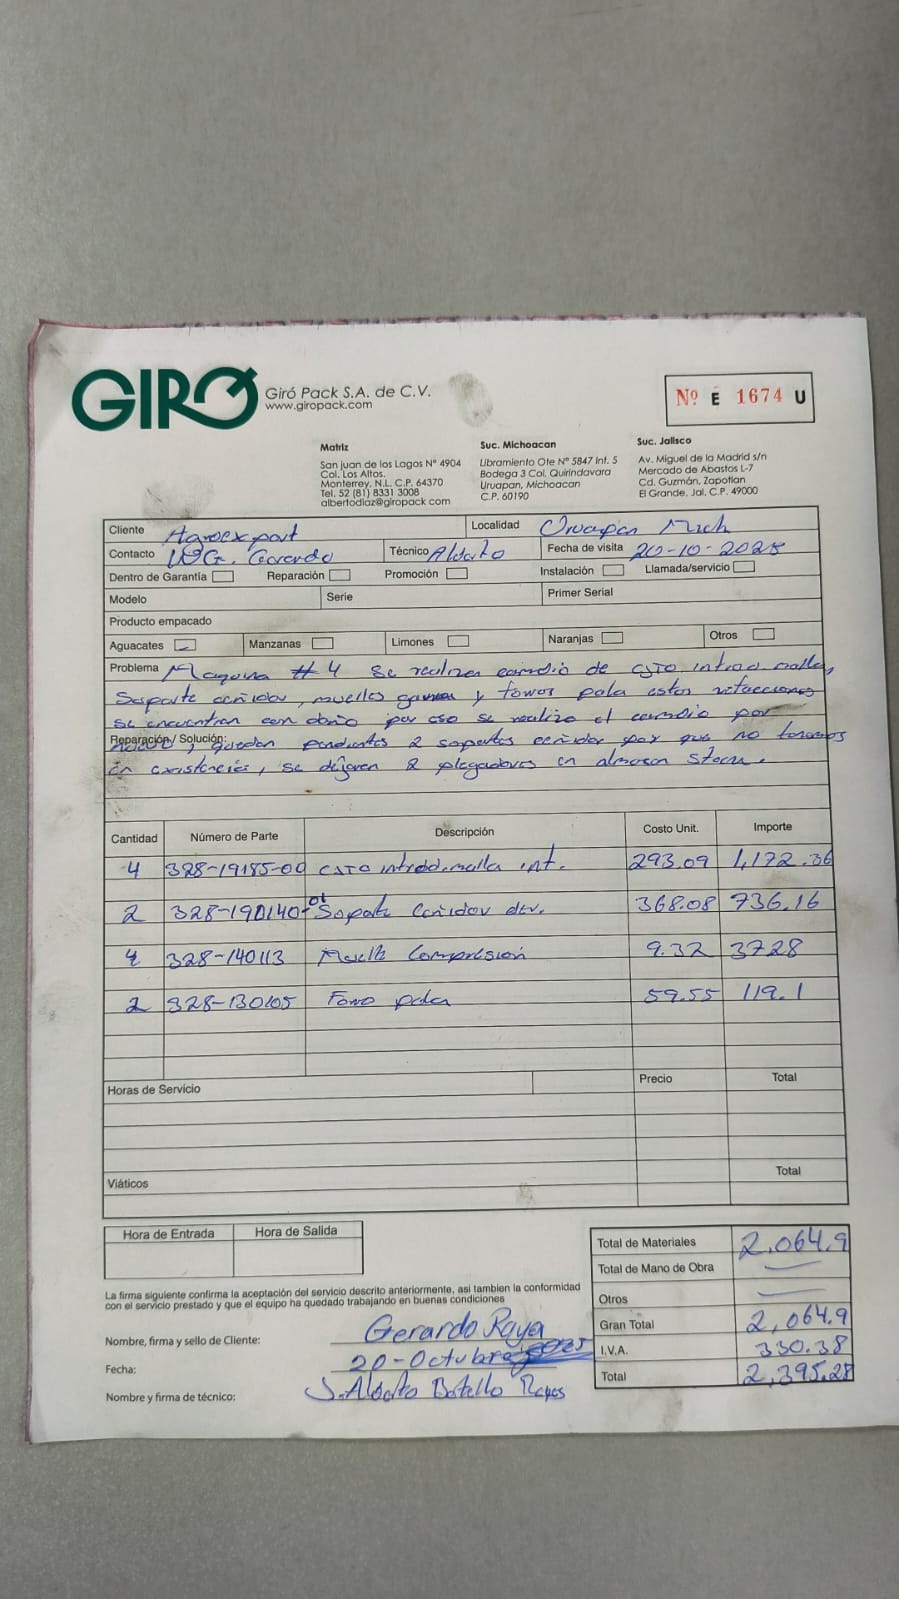 GIRÓ
Giró Pack S.A. de C.V.
www.giropack.com
Nº E 1674 U
Matriz
San juan de los Lagos Nº 4904
Col. Los Altos.
Monterrey, N.L. C.P. 64370
Tel. 52 (81) 8331 3008
albertodiaz@giropack.com
Suc. Michoacan
Libramiento Ote Nº 5847 Int. 5
Bodega 3 Col, Quirindavara
Uruapan, Michoacan
C.P. 60190
Suc. Jalisco
Av. Miguel de la Madrid s/n
Mercado de Abastos L-7
Cd. Guzmán, Zapotlan
El Grande, Jal. C.P. 49000
Cliente Agroexport Localidad Uruapan Mich
Contacto Gerardo Técnico Aldato Fecha de visita 20-10-2025
Dentro de Garantía Reparación Promoción Instalación Llamada/servicio
Modelo Serie Primer Serial
Producto empacado
Aguacates Manzanas Limones Naranjas Otros
Problema Maquina #4 se realiza cambio de csto introd. malla,
Soporte ceñidor, muelles y forros pala estas refacciones
se encuentran con daño por eso se realizo el cambio por
Reparación/ Solución: nuevo, quedan pendientes 2 soportes ceñidor por que no tenemos
en existencia, se dejaron 2 plegadores en almacen
Cantidad Número de Parte Descripción Costo Unit. Importe
4 328-19185-00 csto introd. malla int. 293.09 1,172.36
2 328-190140-01 Soporte ceñidor der. 368.08 736.16
4 328-140113 Muelle Compresion 9.32 37.28
2 328-130105 Forro pala 59.55 119.1
Horas de Servicio Precio Total
Viáticos Total
Hora de Entrada Hora de Salida
Total de Materiales 2,064.9
Total de Mano de Obra
Otros
Gran Total 2,064.9
I.V.A. 330.38
Total 2,395.28
La firma siguiente confirma la aceptación del servicio descrito anteriormente, asi tambien la conformidad
con el servicio prestado y que el equipo ha quedado trabajando en buenas condiciones
Nombre, firma y sello de Cliente: Gerardo Raya
Fecha: 20-Octubre
Nombre y firma de técnico: J. Aldato Botello Reyes